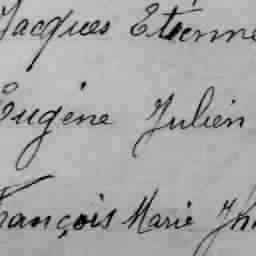 Jacques Etienne
Eugène Julien
François Marie